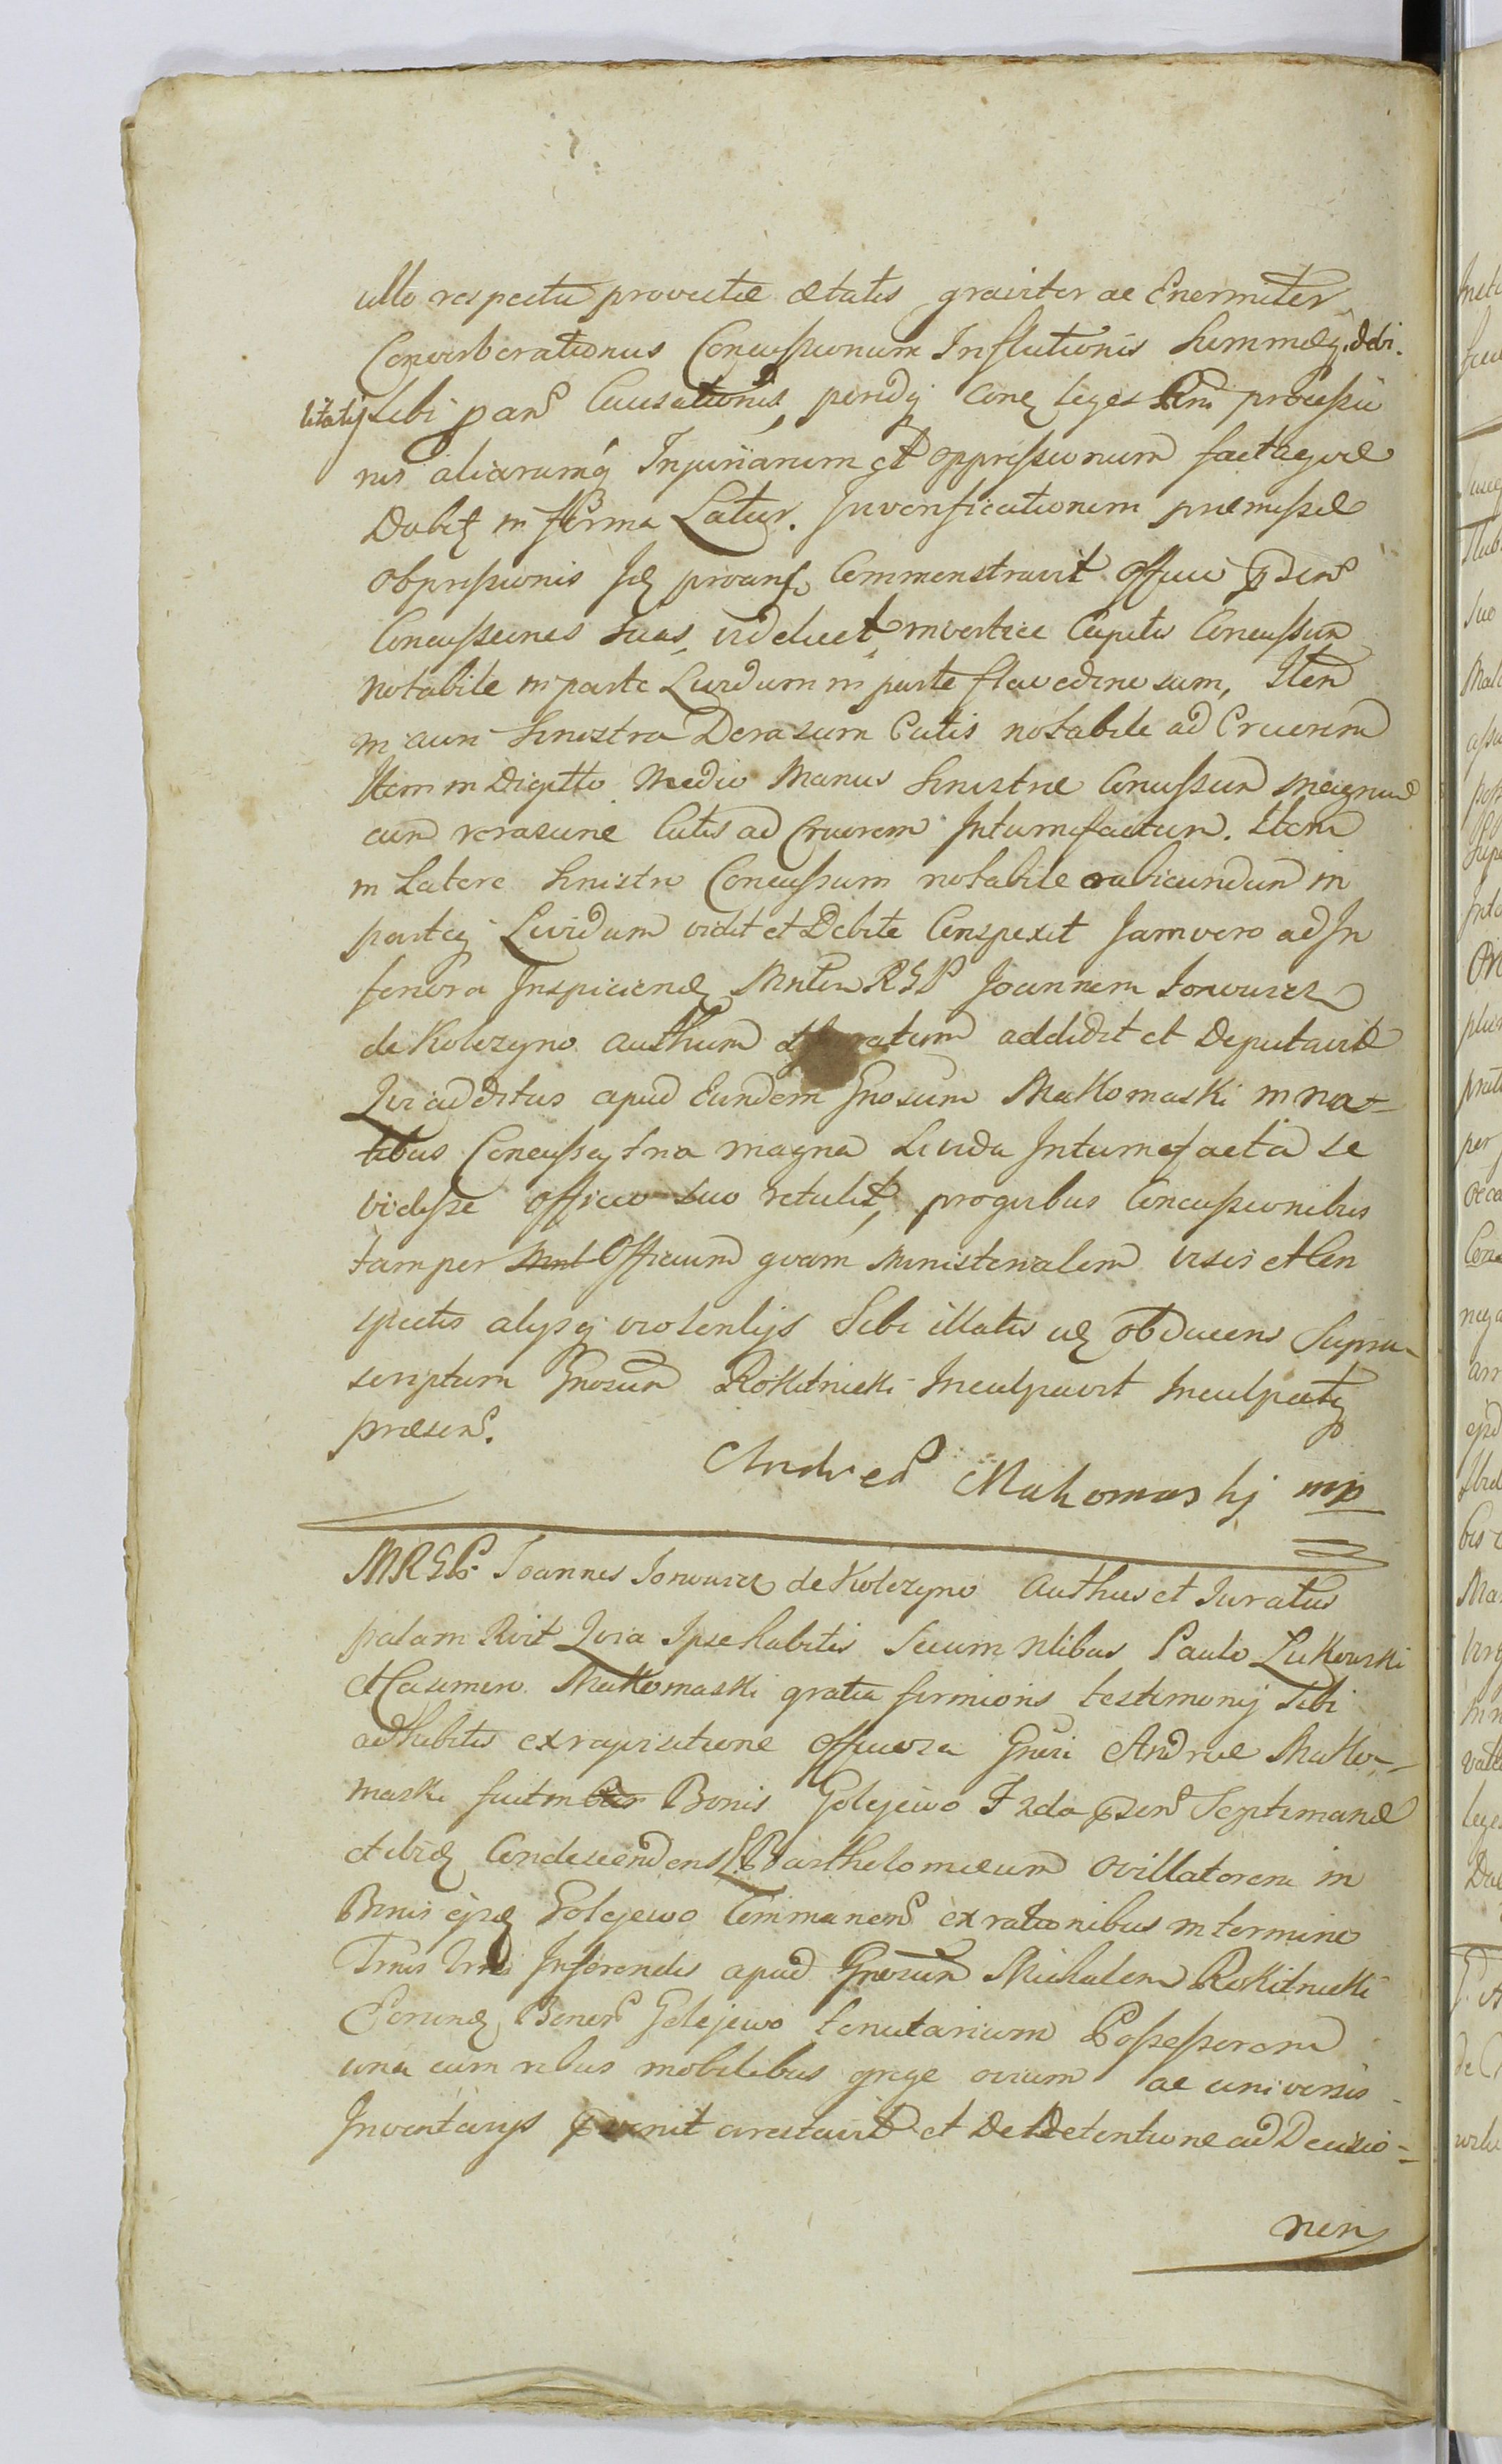 ullo respectu provectæ ætatis graviter ac Enormiter
Converberationis Concussionum Inflationis Summæq, debi-
litatisq Sibi p ans Causationis, perindq conq leges Rni processu
rus aliarumq Injuriarum et oppressionum factaque
Dabit in forma Latur. Inverificationem præmissæ
obpressionis Id proans Commonstravit officio psens
Concussiones suas, videlicet, in vertice Capitis Concussum
notabile in parte Lividum in parte flavedinosum, Item
in aure sinistra Derasum Cutis notabile ad Cruorem
Item in Digitto Medio Manus sinistræ Concussum magnum
cum rerasione Cutis ad Cruorem Intumefactum. Item
in Latere sinistro Concussum notabile rubicundum in
parteq Lividum vidit et Debite Conspexit Jam vero ad In
feriora Inspiciend Mnlem RGP Joannem
de Kolczyno Authum addidit et Deputavit
Qui additus apud Eundem Gnosum Makomaski in na-
tibus Concussa tria magna Livida Intumefacta se
vidisse officio suo retulit, pro quibus Concussionibus
tam per Mnl Officium quam Ministerialem visis et Con
spectis alijsq violentijs Sibi illatis id obducens Supra-
scriptum Gnosum Rokitnicki Inculpavit Inculpatq
præsens.
Andreas Makomaskj mp
MRGP. Joannes de Kolczyno Authus et Juratus
palam Rvit Quia Ipse habitis Secum Nlibus Paulo Lukowski
et Casimiro Makomaski gratia firmioris testimonij Sibi
adhibitis ex requisitione officiosa Gnosi Andreæ Mako-
maski fuit in Bonis Golejewo F 2da psens Septimanæ
et ibid Condescendens L Bartholomæum ovillatorem in
Bonis ejsd Golejewo Commanens ex rationibus in termino
Inferendis apud Gnosum Michalem Rokitnicki
Eorund Bonor Golejewo tenutarium Possessorem
una cum rebus mobilibus grege ovium ac universis
Inventarijs arestavit et De Detentione ad Decisio-
nem